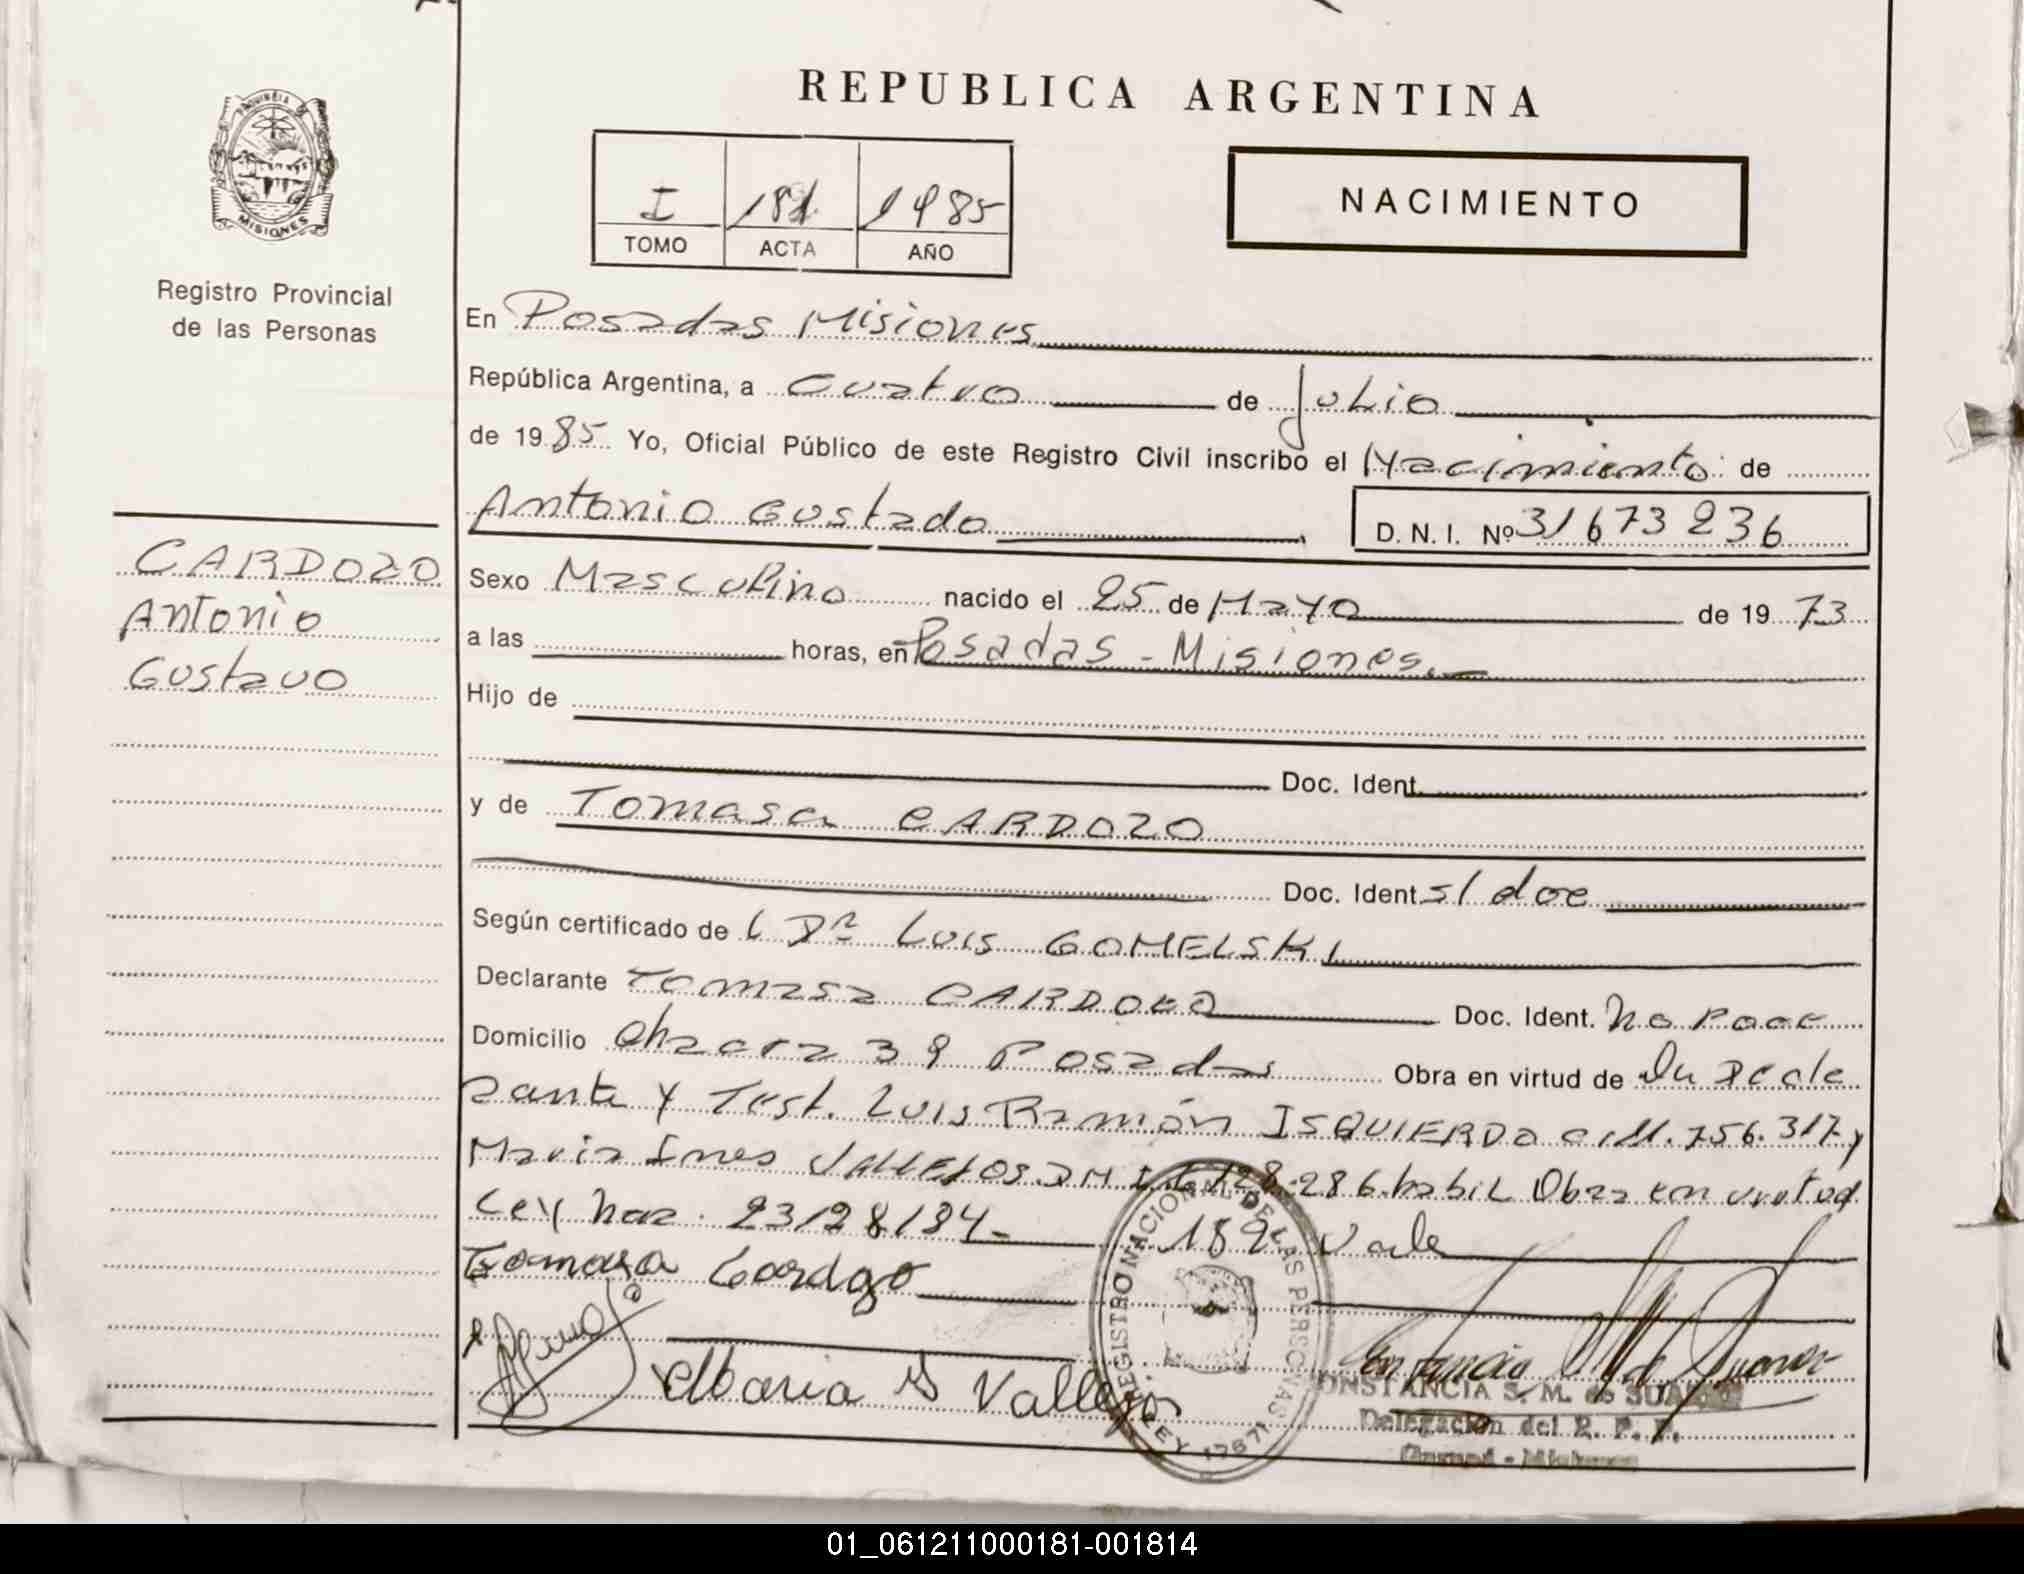 REPUBLICA ARGENTINA
PROVINCIA DE MISIONES
Registro Provincial
de las Personas
I 1985
TOMO ACTA AÑO
NACIMIENTO
En Posadas Misiones
República Argentina, a cuatro de Julio
de 1985 Yo, Oficial Público de este Registro Civil inscribo el Nacimiento de
Antonio Gustado
D. N. I. Nº 31673236
CARDOZO
Antonio
Gustavo
Sexo Masculino nacido el 25 de Mayo de 1973
a las horas, en Posadas - Misiones.
Hijo de
Doc. Ident.
y de Tomasa CARDOZO
Doc. Ident s/doc
Según certificado de l Dr Luis GOMELSKI
Declarante Tomasa CARDOZO Doc. Ident. no posee
Domicilio Chacra 39 Posadas Obra en virtud de Su Decla
rante y Test. Luis Ramón ISQUIERDO 756.317 y
Maria Ines VALLEJOS 128.286. habil Obra en virtud
Ley nac. 23/28/84-
182 Vale
Tomasa Cardozo
Maria Vallejos
REGISTRO NACIONAL DE LAS PERSONAS
LEY 17671
CONSTANCIA S. M. de SUAREZ
Delegación del R. P. P.
01_061211000181-001814